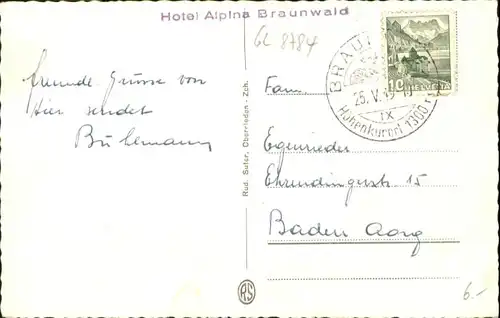 Hotel Alpina Braunwald
GL 8784
freunde Grüsse von
Hier sendet
Buhlmann
Rud. Suter, Oberrieden - Zch.
BRAUN
25. V. 
IX
Höhenkurort 1300
10 HELVETIA
Fam.
Egenrieder
Ehrendingerstr. 15
Baden Aarg
RS
6.-